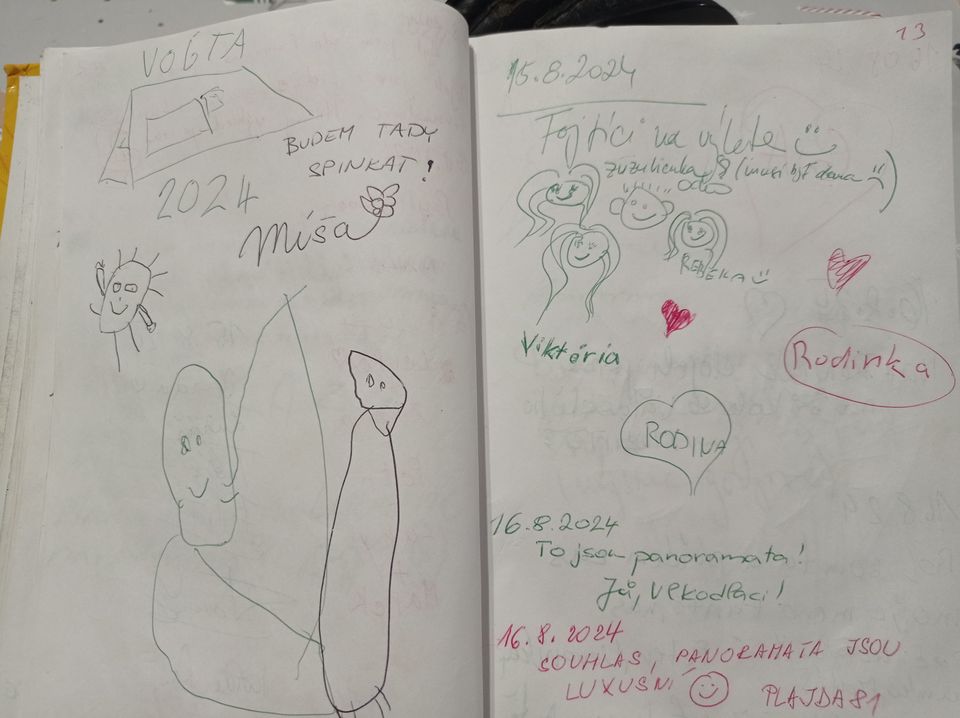 VOGTA
BUDEM TADY
SPINKAT!
2024
Míša
13
15.8.2024
Fojtíci na výletě
Zuzulienka (musí být dana
REBÉKA
Viktória
Rodinka
RODINA
16.8.2024
To jsou panoramata!
Já, Vlkodlaci!
16.8.2024
SOUHLAS, PANORAMATA JSOU
LUXUSNÍ PLAJDA81